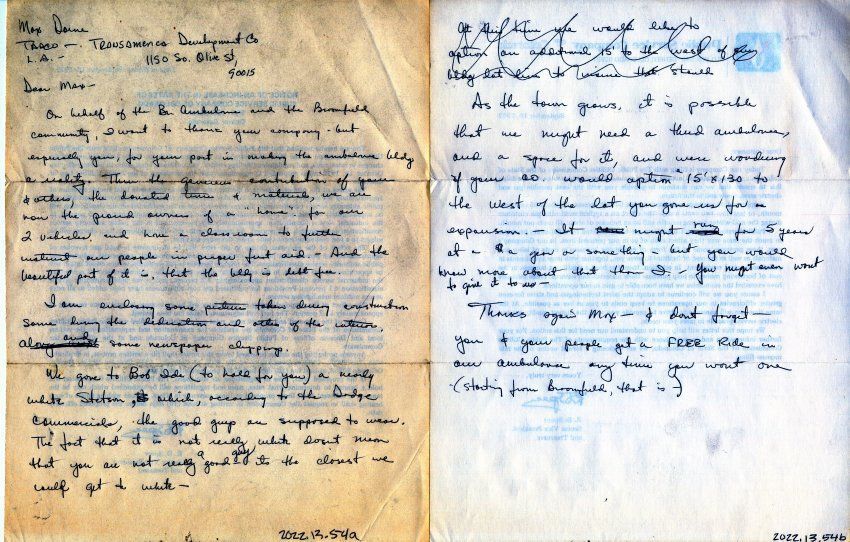 Max Dorne
TADCO - Transamerica Development Co
L.A. - 1150 So. Olive St,
90015
Dear Max-
On behalf of the Br. Ambulance and the Broomfield
community, I want to thank your company - but
especially you, for your part in making the ambulance bldg
a reality. Thru the generous contribution of yours
& others, the donated time & materials, we are
now the proud owners of a "home" for our
2 vehicles and have a classroom to further
instruct our people in proper first aid. - And the
beautiful part of it is, that the bldg is debt free.
I am enclosing some picture taken during construction
some during the dedication and others of the interior,
Along some newspaper clippings.
We gave to Bob (to hold for you) a nearly
white Stetson, which, according to the Dodge
commercials, the good guys are supposed to wear.
The fact that it is not really white doesn't mean
that you are not really a good guy its the closest we
could get to white -
2022.13.54a
At this time we would like to
option an additional 15' to the west of
bldg lot to insure that should
As the town grows, it is possible
that we might need a third ambulance,
and a space for it, and were wondering
if your co would option 15' x 130 to
the west of the lot you gave us for a
expansion. - It might run for 5 years
at a $ a year or something - but you would
know more about that than I. - You might even want
to give it to us -
Thanks again Max - & dont forget -
you & your people get a FREE Ride in
our ambulance any time you want one
- (starting from Broomfield, that is)
2022.13.54b